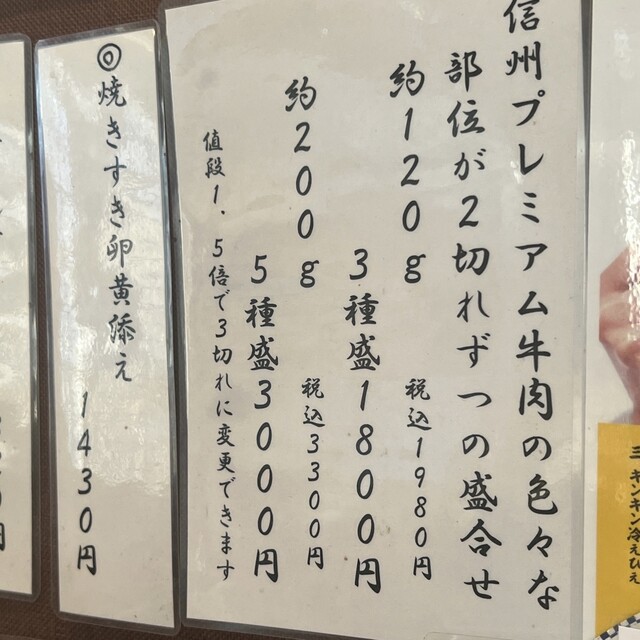 信州プレミアム牛肉の色々な
部位が2切れずつの盛合せ
約120g
税込1980円
3種盛1800円
約200g
税込3300円
5種盛3000円
値段1.5倍で3切れに変更できます
◎焼きすき卵黄添え
1430円
キンキン冷えひえ